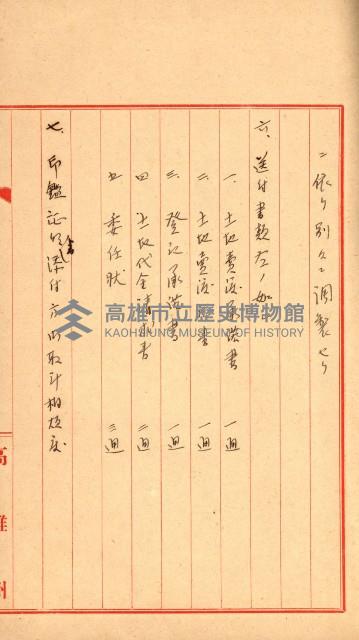 ニ依リ別々ニ調製セリ
六、送付書類左ノ如シ
一、土地賣渡承諾書 一通
二、土地賣渡證書 一通
三、登記承諾書 一通
四、土地代金請求書 三通
五、委任狀 三通
七、印鑑証明書添付方御取計相煩度
高雄州
高雄市立歷史博物館
KAOHSIUNG MUSEUM OF HISTORY